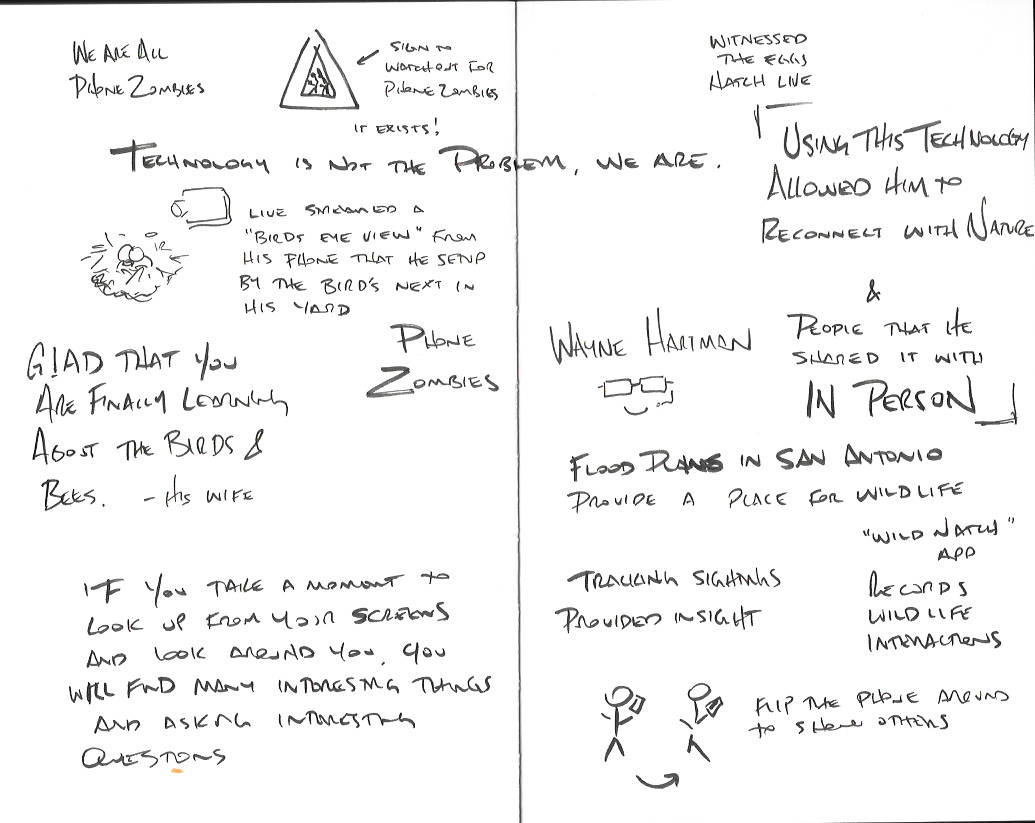 WE ARE ALL
PHONE ZOMBIES
SIGN TO
WATCH OUT FOR
PHONE ZOMBIES
IT EXISTS!
TECHNOLOGY IS NOT THE PROBLEM, WE ARE.
LIVE STREAMED A
"BIRDS EYE VIEW" FROM
HIS PHONE THAT HE SETUP
BY THE BIRD'S NEXT IN
HIS YARD
PHONE
ZOMBIES
GLAD THAT YOU
ARE FINALLY LEARNING
ABOUT THE BIRDS &
BEES. - HIS WIFE
IF YOU TAKE A MOMENT TO
LOOK UP FROM YOUR SCREENS
AND LOOK AROUND YOU, YOU
WILL FIND MANY INTERESTING THINGS
AND ASKING INTERESTING
QUESTIONS
WITNESSED
THE EGGS
HATCH LIVE
USING THIS TECHNOLOGY
ALLOWED HIM TO
RECONNECT WITH NATURE
&
PEOPLE THAT HE
SHARED IT WITH
IN PERSON
WAYNE HARTMAN
FLOOD PLAINS IN SAN ANTONIO
PROVIDE A PLACE FOR WILDLIFE
"WILD WATCH"
APP
RECORDS
WILDLIFE
INTERACTIONS
TRACKING SIGHTINGS
PROVIDED INSIGHT
FLIP THE PHONE AROUND
TO SHOW OTHERS